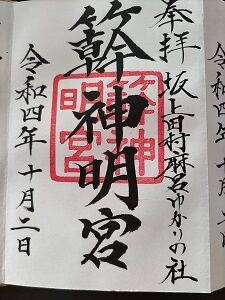 奉拝
坂上田村麿公ゆかりの社
簳神明宮
簳神明宮
令和四年十月二日
令和四年十